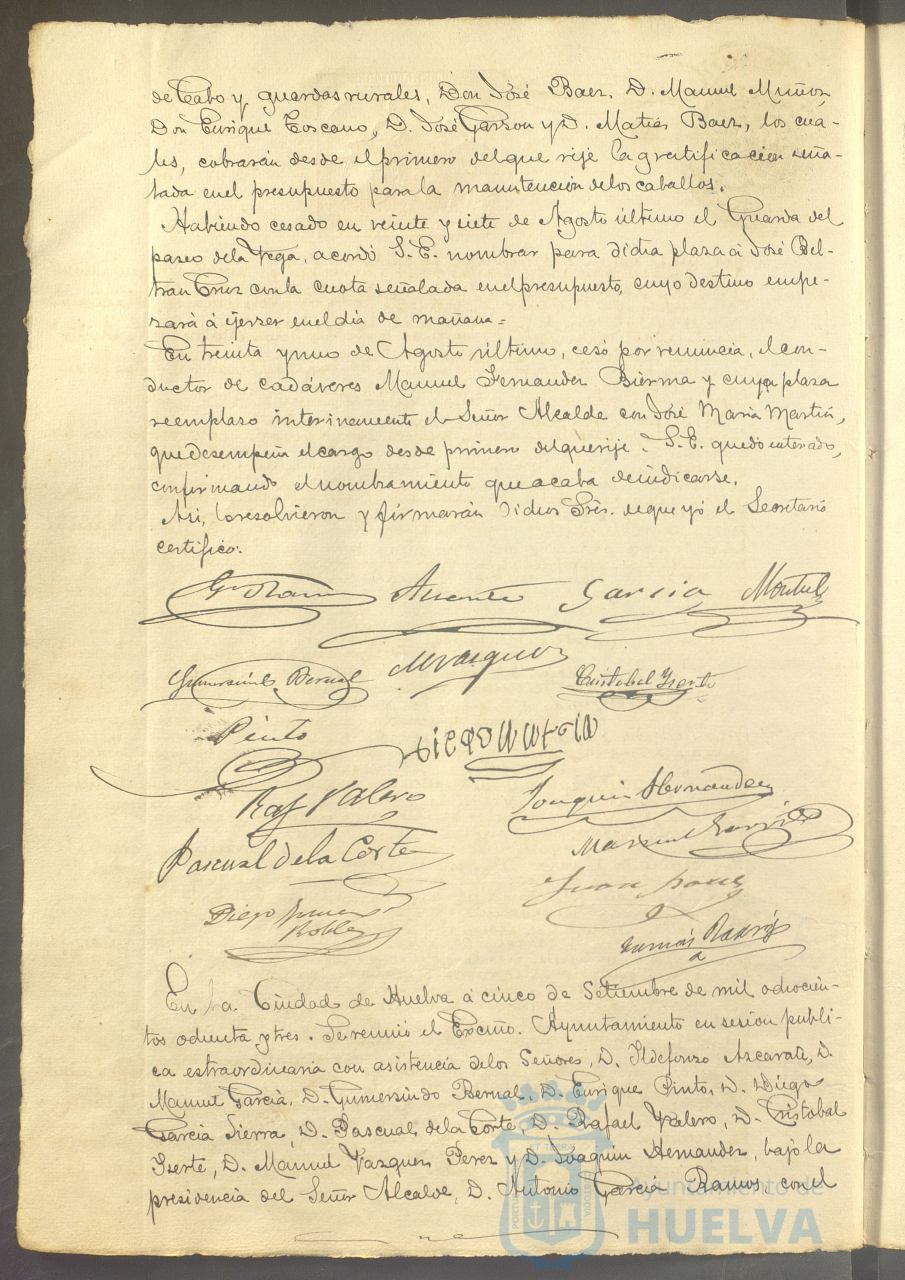 de Cabo y guardas rurales, Don José Baez, D. Manuel Muñoz,
Don Enrique Toscano, D. José Garzon y D. Matias Baez, los cua-
les, cobrarán desde el primero del que rije la gratificacion seña-
lada en el presupuesto para la manutencion de los caballos.
Habiendo cesado en veinte y siete de Agosto último el Guarda del
paseo de la Vega, acordó S. E. nombrar para dicha plaza á José Bel-
tran Cruz con la cuota señalada en el presupuesto, cuyo destino empe-
zará á ejerser en el dia de mañana =
En treinta y uno de Agosto último, cesó por renuncia, el con-
ductor de cadáveres Manuel Fernandez Bierma y cuya plaza
reemplazo interinamente el Señor Alcalde con José Maria Martin,
que desempeña el cargo desde primero del que rije. S. E. quedó enterado,
confirmando el nombramiento que acaba de indicarse.
Asi, lo resolvieron y firmarán dichos Sres. de que yó el Secretario
certifico:
Garcia
Gumersindo Bernal M Vazquez Cristobal Yzerte
Pinto
Diego Garcia
Raf Valero Joaquin Hernandez
Manuel
Pascual de la Corte
Juan
Diego
Robles
En la Ciudad de Huelva á cinco de Setiembre de mil ochocien-
tos ochenta y tres. Se reunió el Excmo. Ayuntamiento en sesion publi-
ca estraordinaria con asistencia de los Señores, D. Ildefonzo Azcarate, D.
Manuel Garcia, D. Gumersindo Bernal, D. Enrique Pinto, D. Diego
Garcia Sierra, D. Pascual de la Corte, D. Rafael Valero, D. Cristobal
Yzerte, D. Manuel Vazquez Perez y D. Joaquin Hernandez, bajo la
presidencia del Señor Alcalde, D. Antonio Garcia Ramos, con el
Ayuntamiento de
HUELVA